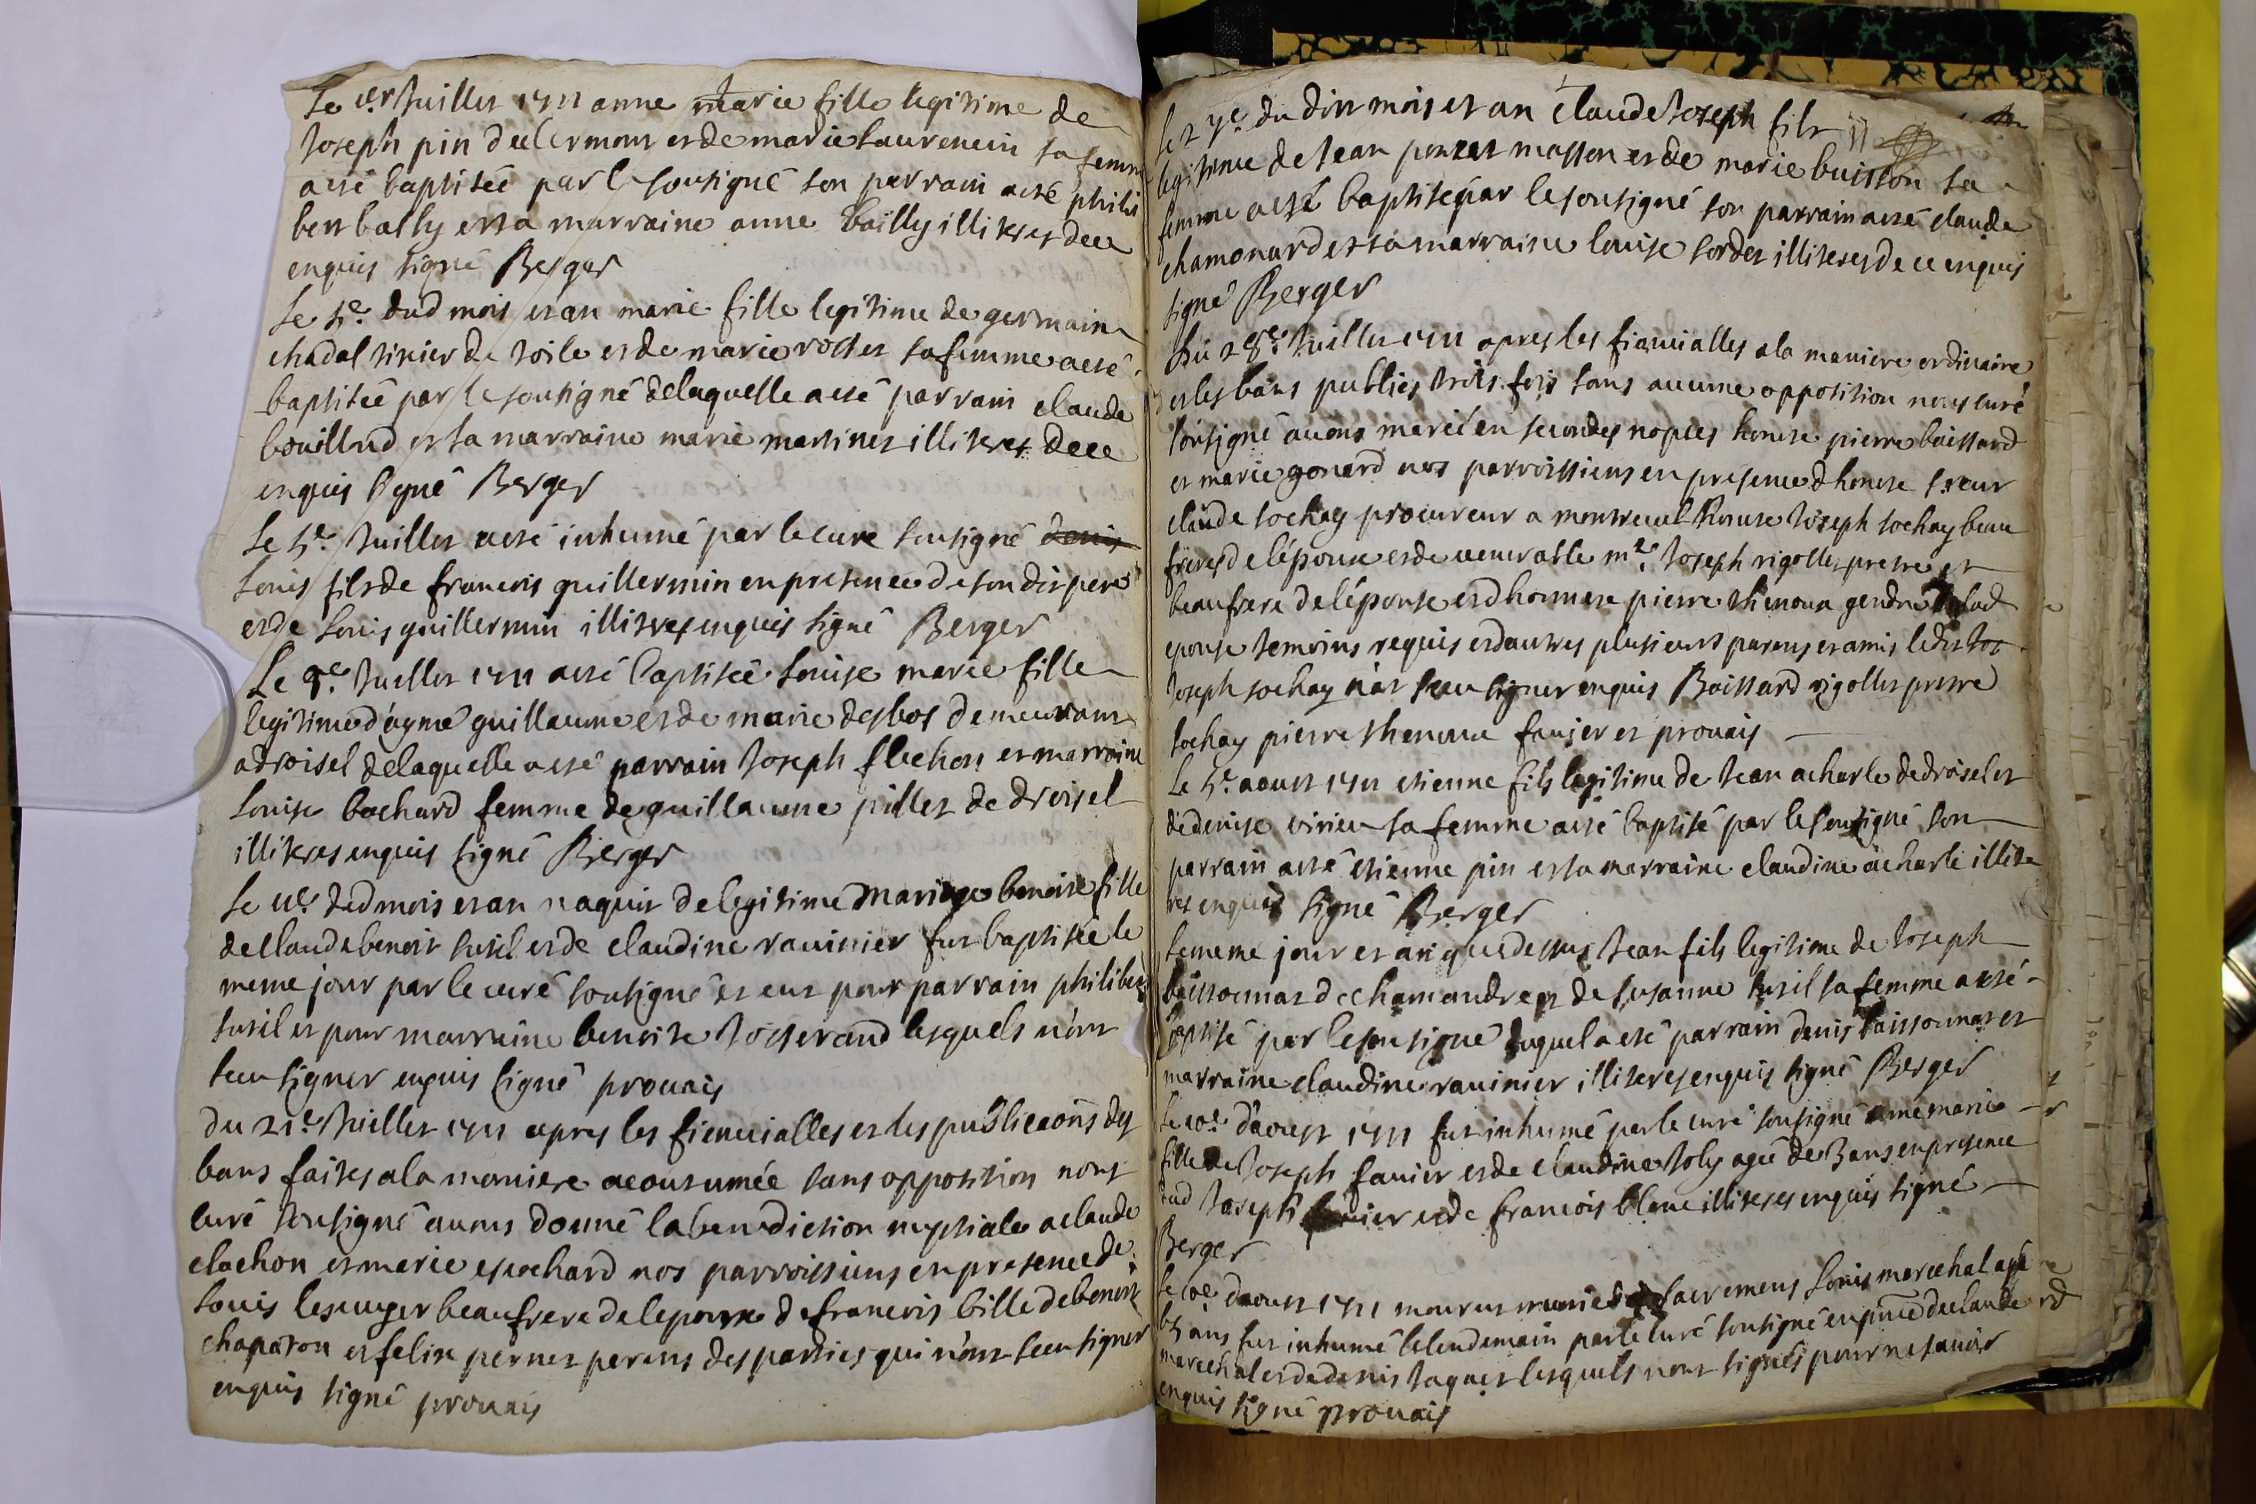 Le 1er Juillet 1711 anne marie fille legitime de
Joseph pin de clermont et de marie laurencin sa femme
a esté baptisée par le sousigné son parrain a esté phili
bert bally et sa marraine anne bailly illiteres de ce
enquis signé Berger
Le 5e. dud mois et an marie fille legitime de germain
chadal tixier de toile et de marie rostet sa femme a esté
baptisée par le sousigné de laquelle a esté parrain claude
bouillud et sa marraine marie martinet illiteres de ce
enquis signé Berger
Le 5e. Juillet a esté inhumé par le curé sousigné denis
Louis fils de francois guillermin en presence de son dit pere
et de Louis guillermin illitres enquis signé Berger
Le 8e. Juillet 1711 a esté baptisée Louise marie fille
legitime d'aymé guillaume et de marie desbos demeurant
a droisel de laquelle a esté parrain Joseph flechon et marraine
Louise bochard femme de guillaume pillet de droisel
illiteres enquis signé Berger
Le 11e. dud mois et an naquit de legitime mariage benoite fille
de claude benoit suril et de claudine rauinier fut baptisée le
meme jour par le curé sousigné et eut pour parrain philibert
suril et pour marraine benoite tosserand lesquels n'ont
sceu signer enquis signé prouais
Du 21e. Juillet 1711 apres les fiencialles et les publicaõns des
bans faites a la maniere acoutumée sans opposition nous
curé sousigné auons donné la benediction nuptiale a claude
clachon et marie espochard nos parroissiens en presence de
Louis lescuyer beaufrere de lepouse de francois bille de benoit
chaparon et felix pernet parens des parties qui n'ont sceu signer
enquis signé prouais
Le 27e. du dit mois et an claude Joseph fils
legitime de Jean ponzet masson et de marie buisson sa
femme a esté baptisé par le sousigné son parrain a esté claude
chamonard et sa marraine louise sordet illiteres de ce enquis
signé Berger
Du 28e. Juillet 1711 apres les fiancialles a la maniere ordinaire
et les bans publies trois fois sans aucune opposition nous curé
sousigné auons marié en secondes nopces honete pierre boissard
et marie gonard nos parroissiens en presence d'honete sieur
claude sochay procureur a montreuel honete Joseph sochay beau
freres de l'épouse et de venerable mre. Joseph rigollet prestre et
beaufrere de l'épouse et d'honnete pierre thenoux gendre de lad
epouse temoins requis et d'autres plusieurs parens et amis ledit Jos
Joseph sochay n'at sceu signer enquis Boissard rigollet prestre
sochay pierre thenoux faujer et prouais
Le 5e. aoust 1711 etienne fils legitime de Jean acharle de droisel et
de denise virieu sa femme a esté baptisé par le sousigné son
parrain a esté etienne pin et sa marraine claudine acharle illite
res enquis signé Berger
Le meme jour et an que dessus Jean fils legitime de Joseph
boissonnat de chamandre et de susanne suril sa femme a esté
baptisé par le sousigné duquel a esté parrain denis boissonnat et
marraine claudine rauinier illiteres enquis signé Berger
Le 10e. d'aoust 1711 fut inhumé par le curé sousigné aimé marie
fille de Joseph fauier et de claudine Joly agée de 3 ans en presence
dud Joseph fauier et de francois blanc illiteres enquis signé
Berger
Le 10e. daoust 1711 mourut munie des sacremens Louis marechal agé
65 ans fut inhumé le lendemain par le curé sousigné en pnce de claude
marechal et de denis Jaquet lesquels n'ont signés pour ne sauoir
enquis signé prouais